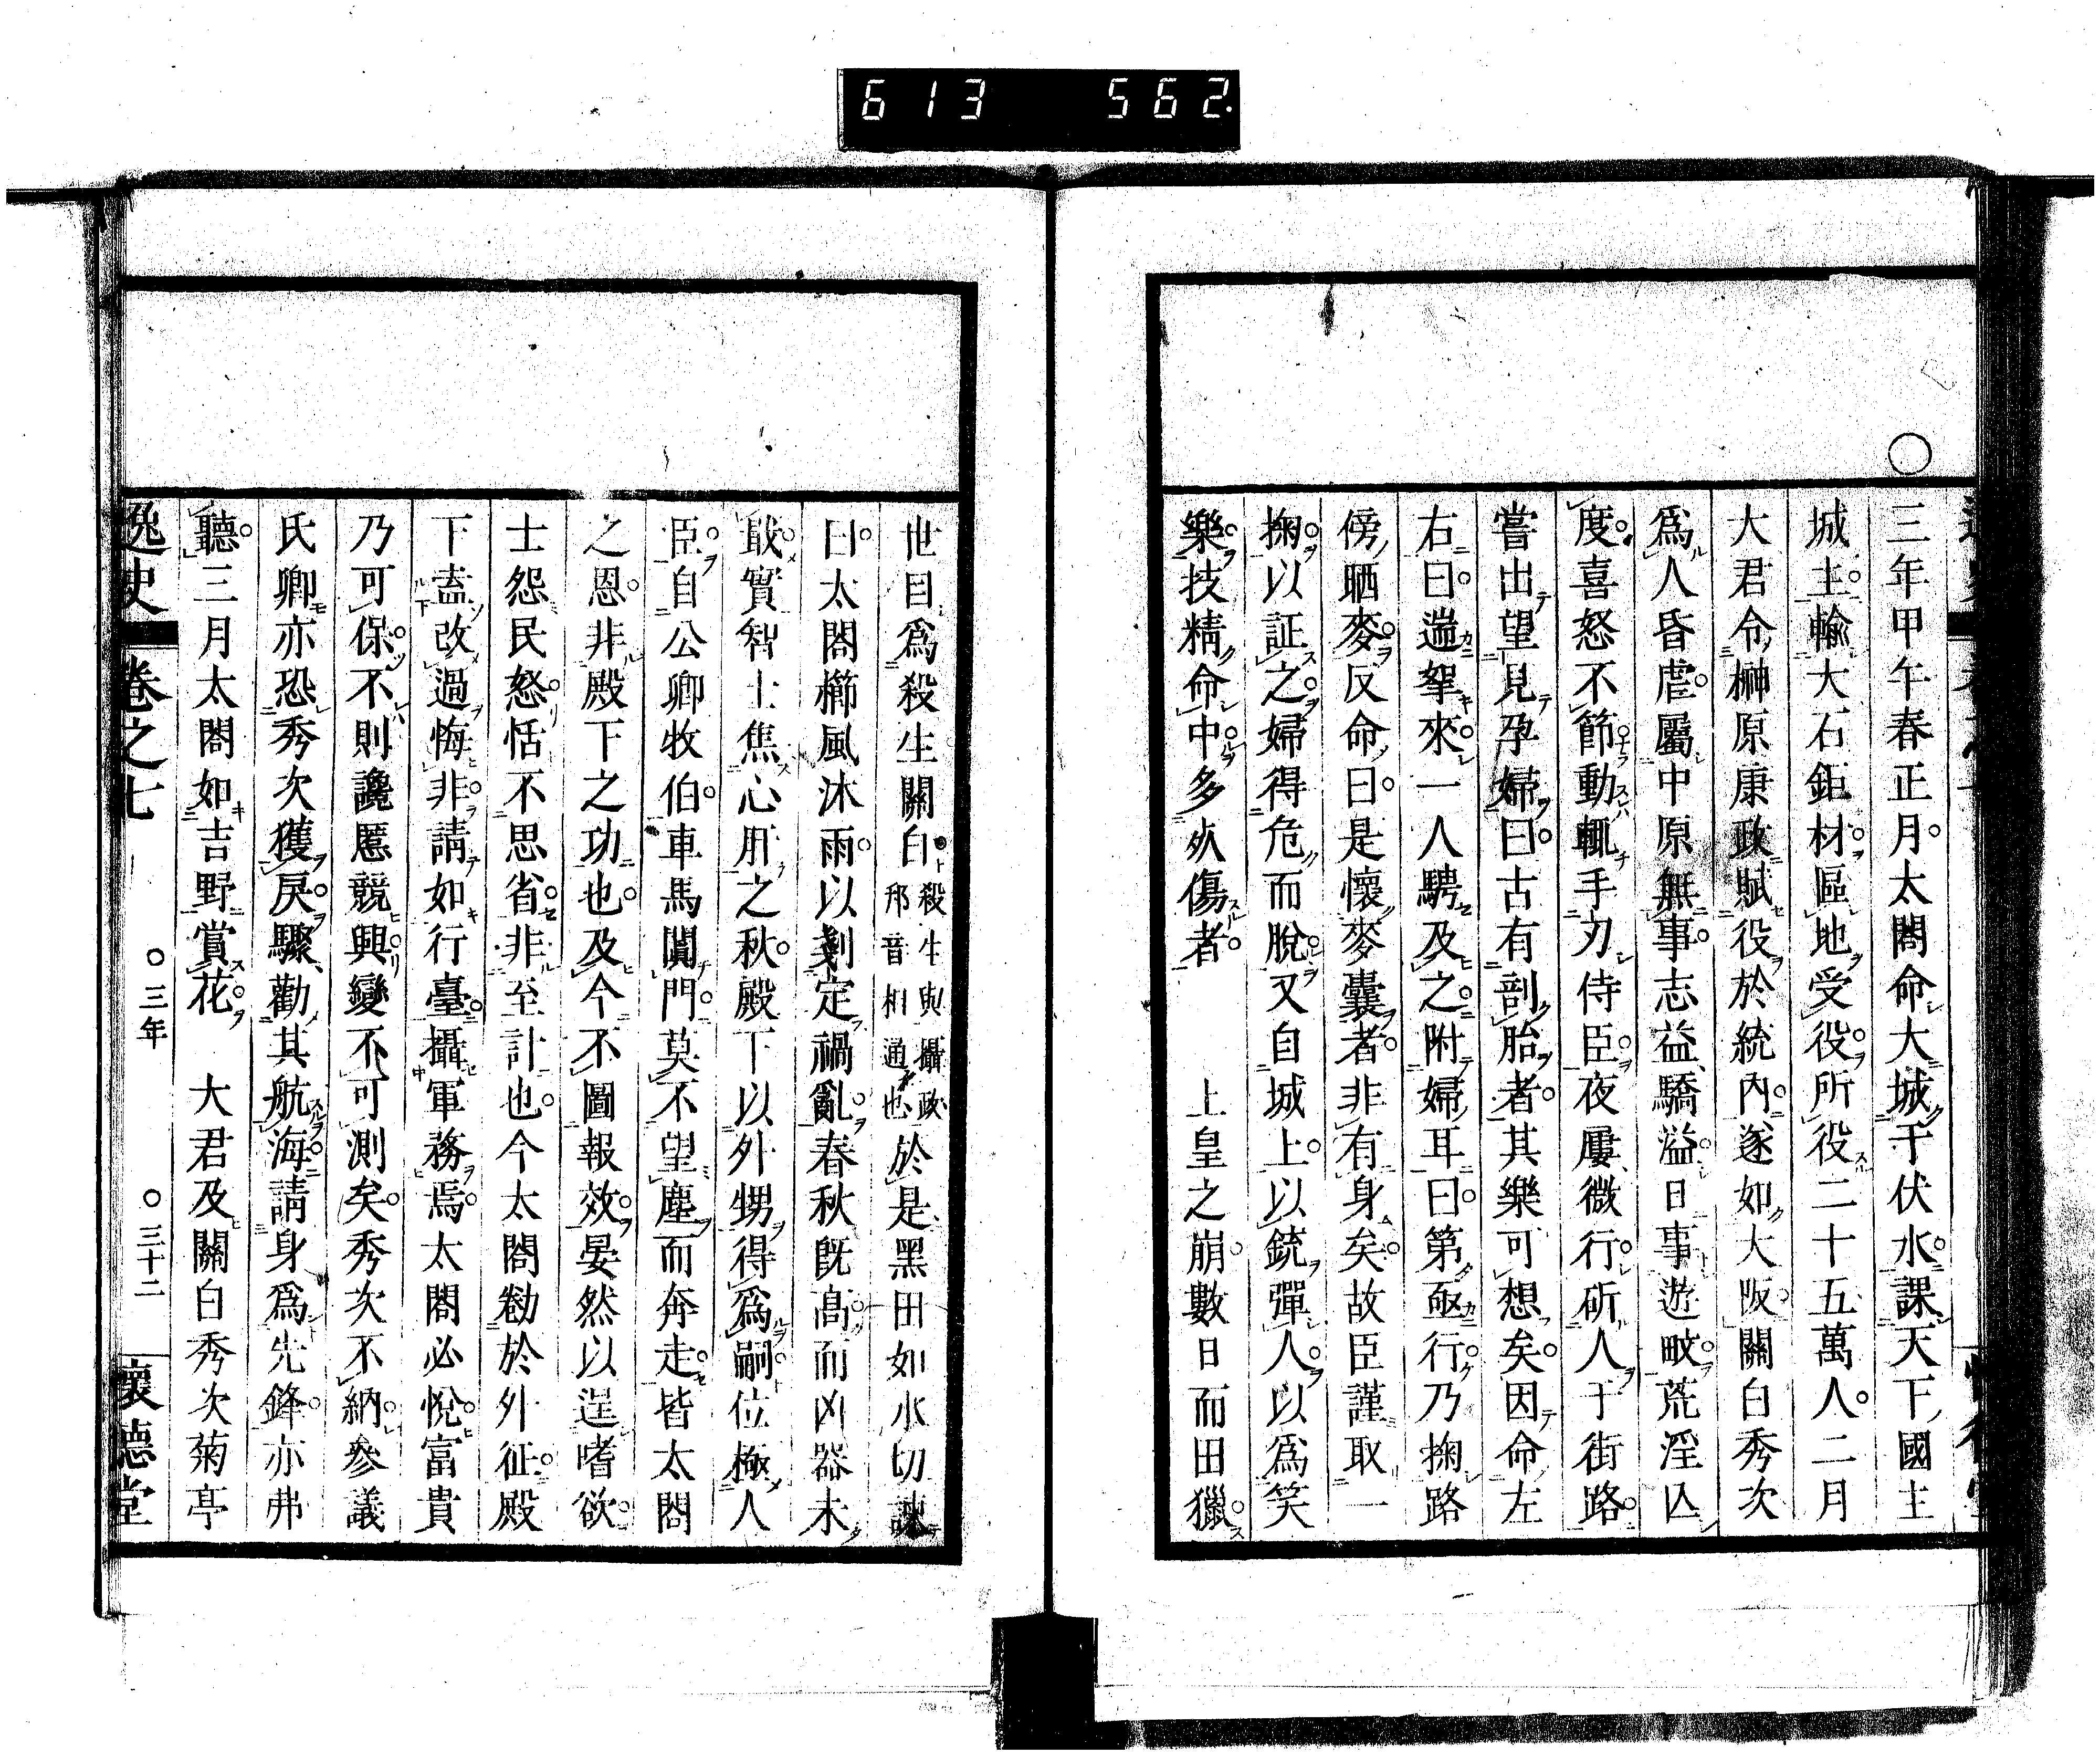 613 562
○
三年甲午春正月太閤命大城于伏水課天下國主
城主輸大石鉅材區地受役所役二十五萬人二月
大君令榊原康政賦役於統內遂如大阪關白秀次
爲人昏虐屬中原無事志益驕溢日事遊畋荒淫亾
度喜怒不節動輒手刃侍臣夜屢微行斫人于街路
嘗出望見孕婦曰古有剖胎者其樂可想矣因命左
右曰遄拏來一人騁及之附婦耳曰第亟行乃掬路
傍晒麥反命曰是懷麥囊者非有身矣故臣謹取一
掬以証之婦得危而脫又自城上以銃彈人以爲笑
樂技精命中多死傷者 上皇之崩數日而田獵
世目爲殺生關白殺生與攝政邦音相通也於是黑田如水切諫
曰太閤櫛風沐雨以剗定禍亂春秋旣高而凶器未
戢實智士焦心肝之秋殿下以外甥得爲嗣位極人
臣自公卿牧伯車馬闐門莫不望塵而奔走皆太閤
之恩非殿下之功也及今不圖報效晏然以逞嗜欲
士怨民怒恬不思省非至計也今太閤勌於外征殿
下盍改過悔非請如行臺攝軍務焉太閤必悅富貴
乃可保不則讒慝競興變不可測矣秀次不納參議
氏卿亦恐秀次獲戾驟勸其航海請身爲先鋒亦弗
聽三月太閤如吉野賞花 大君及關白秀次菊亭
逸史 卷之七 ○三年 ○三十二 懷德堂